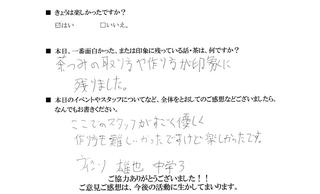 ■ きょうは楽しかったですか？
☑はい　　□いいえ。
■ 本日、一番面白かった、または印象に残っている話・茶は、何ですか？
茶つみの取り方や作り方が印象に
残りました。
■ 本日のイベントやスタッフについてなど、全体をとおしてのご感想などございましたら、
なんでもお書きください。
ここでのスタッフがすごく優しく
作り方を難しかったですけど楽しかったです。
雄也 中学3
ご協力ありがとうございました！！
ご意見ご感想は、今後の活動に生かしてまいります。